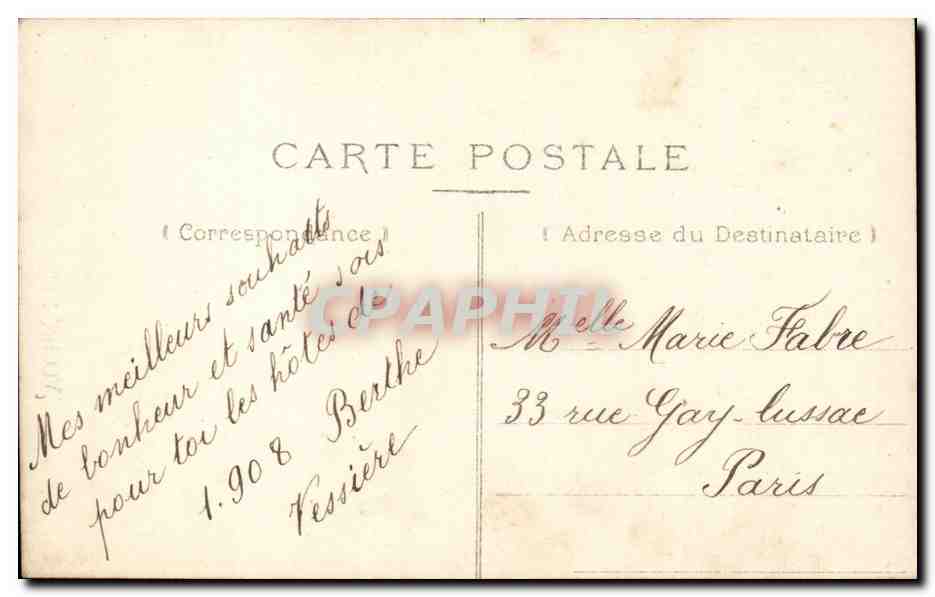 CARTE POSTALE
( Correspondance )
Mes meilleurs souhaits
de bonheur et santé sois
pour toi les hôtes de
1.908 Berthe
Vessière
( Adresse du Destinataire )
Melle Marie Fabre
33 rue Gay-lussac
Paris
CPAPHIL